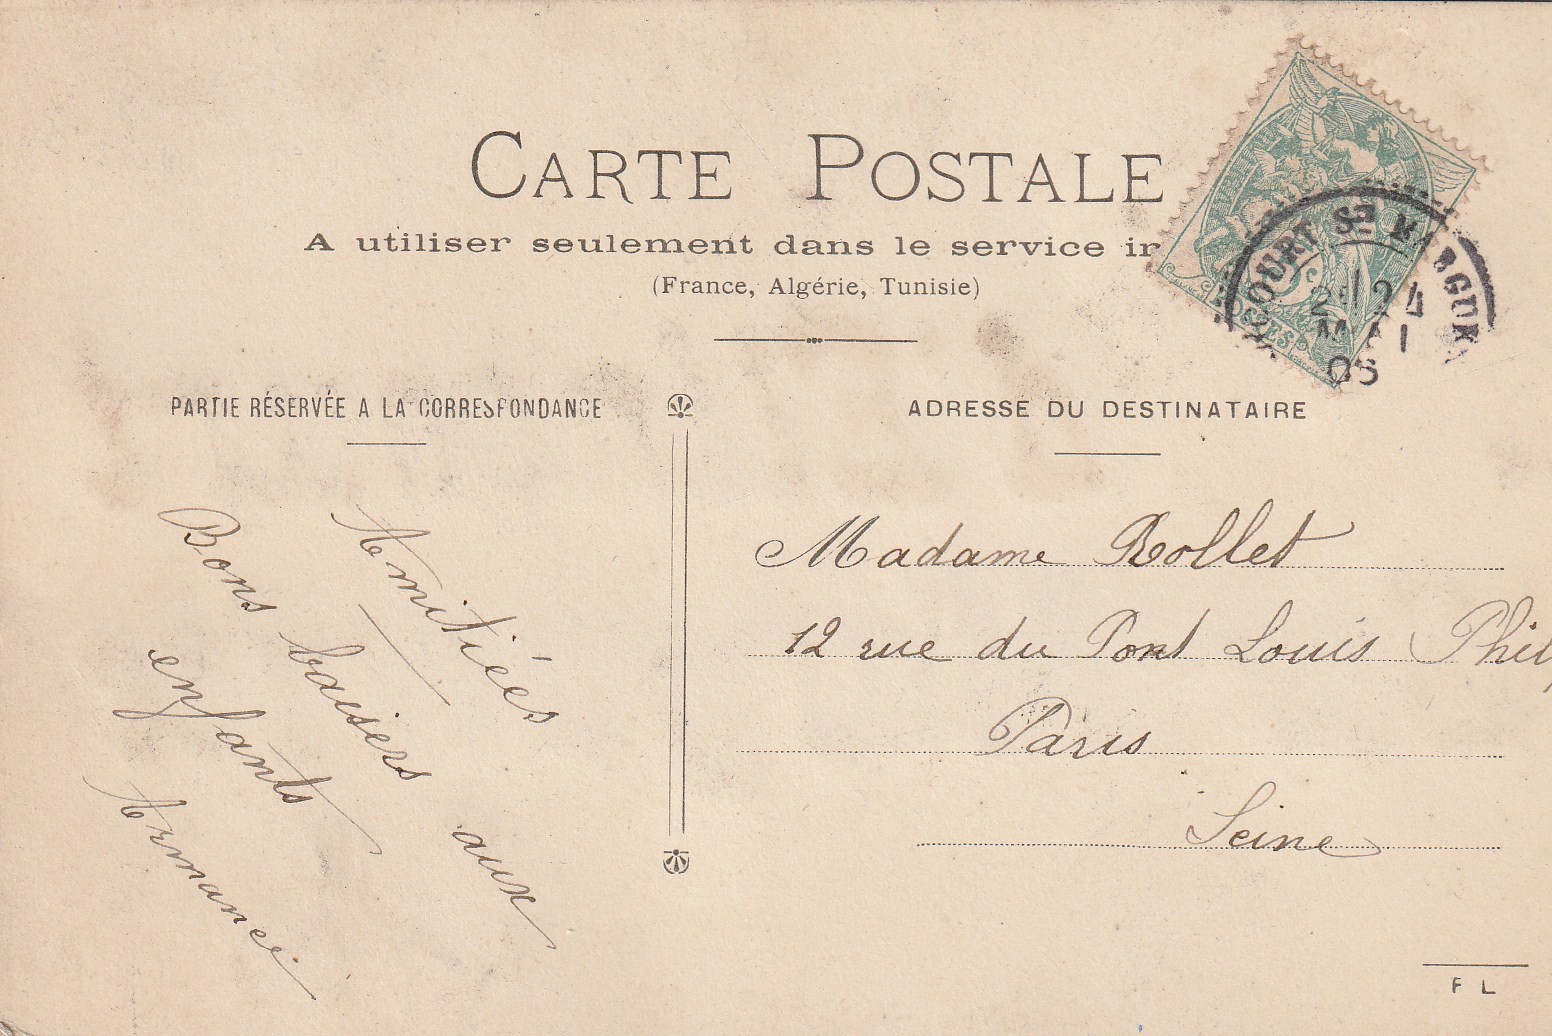 CARTE POSTALE
A utiliser seulement dans le service in
(France, Algérie, Tunisie)
PARTIE RÉSERVÉE A LA CORRESPONDANCE
ADRESSE DU DESTINATAIRE
Amitiés
Bons baisers aux
enfants
Armance
Madame Rollet
12 rue du Pont Louis Phil
Paris
Seine
COURT STE MARGUE
24
MAI
POSTES
F L